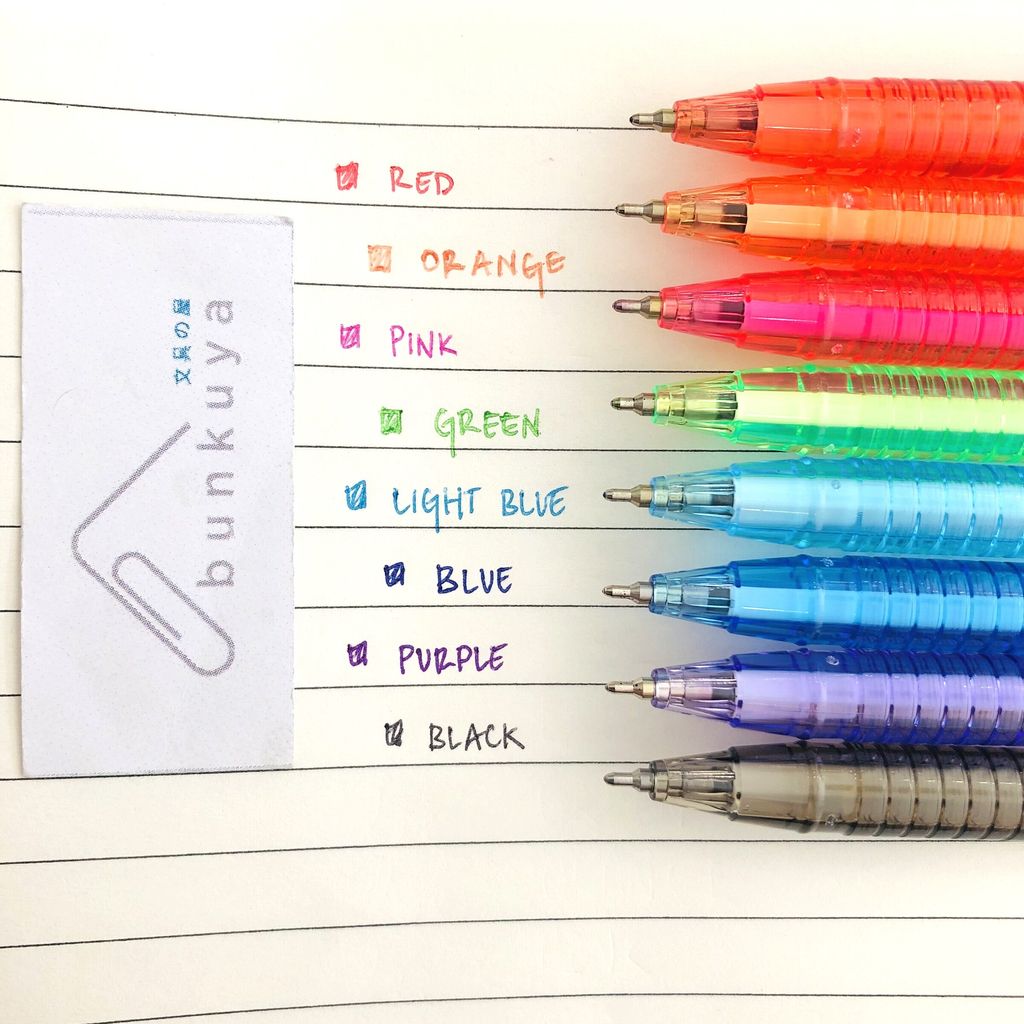 文具の屋
bunkuya
RED
ORANGE
PINK
GREEN
LIGHT BLUE
BLUE
PURPLE
BLACK